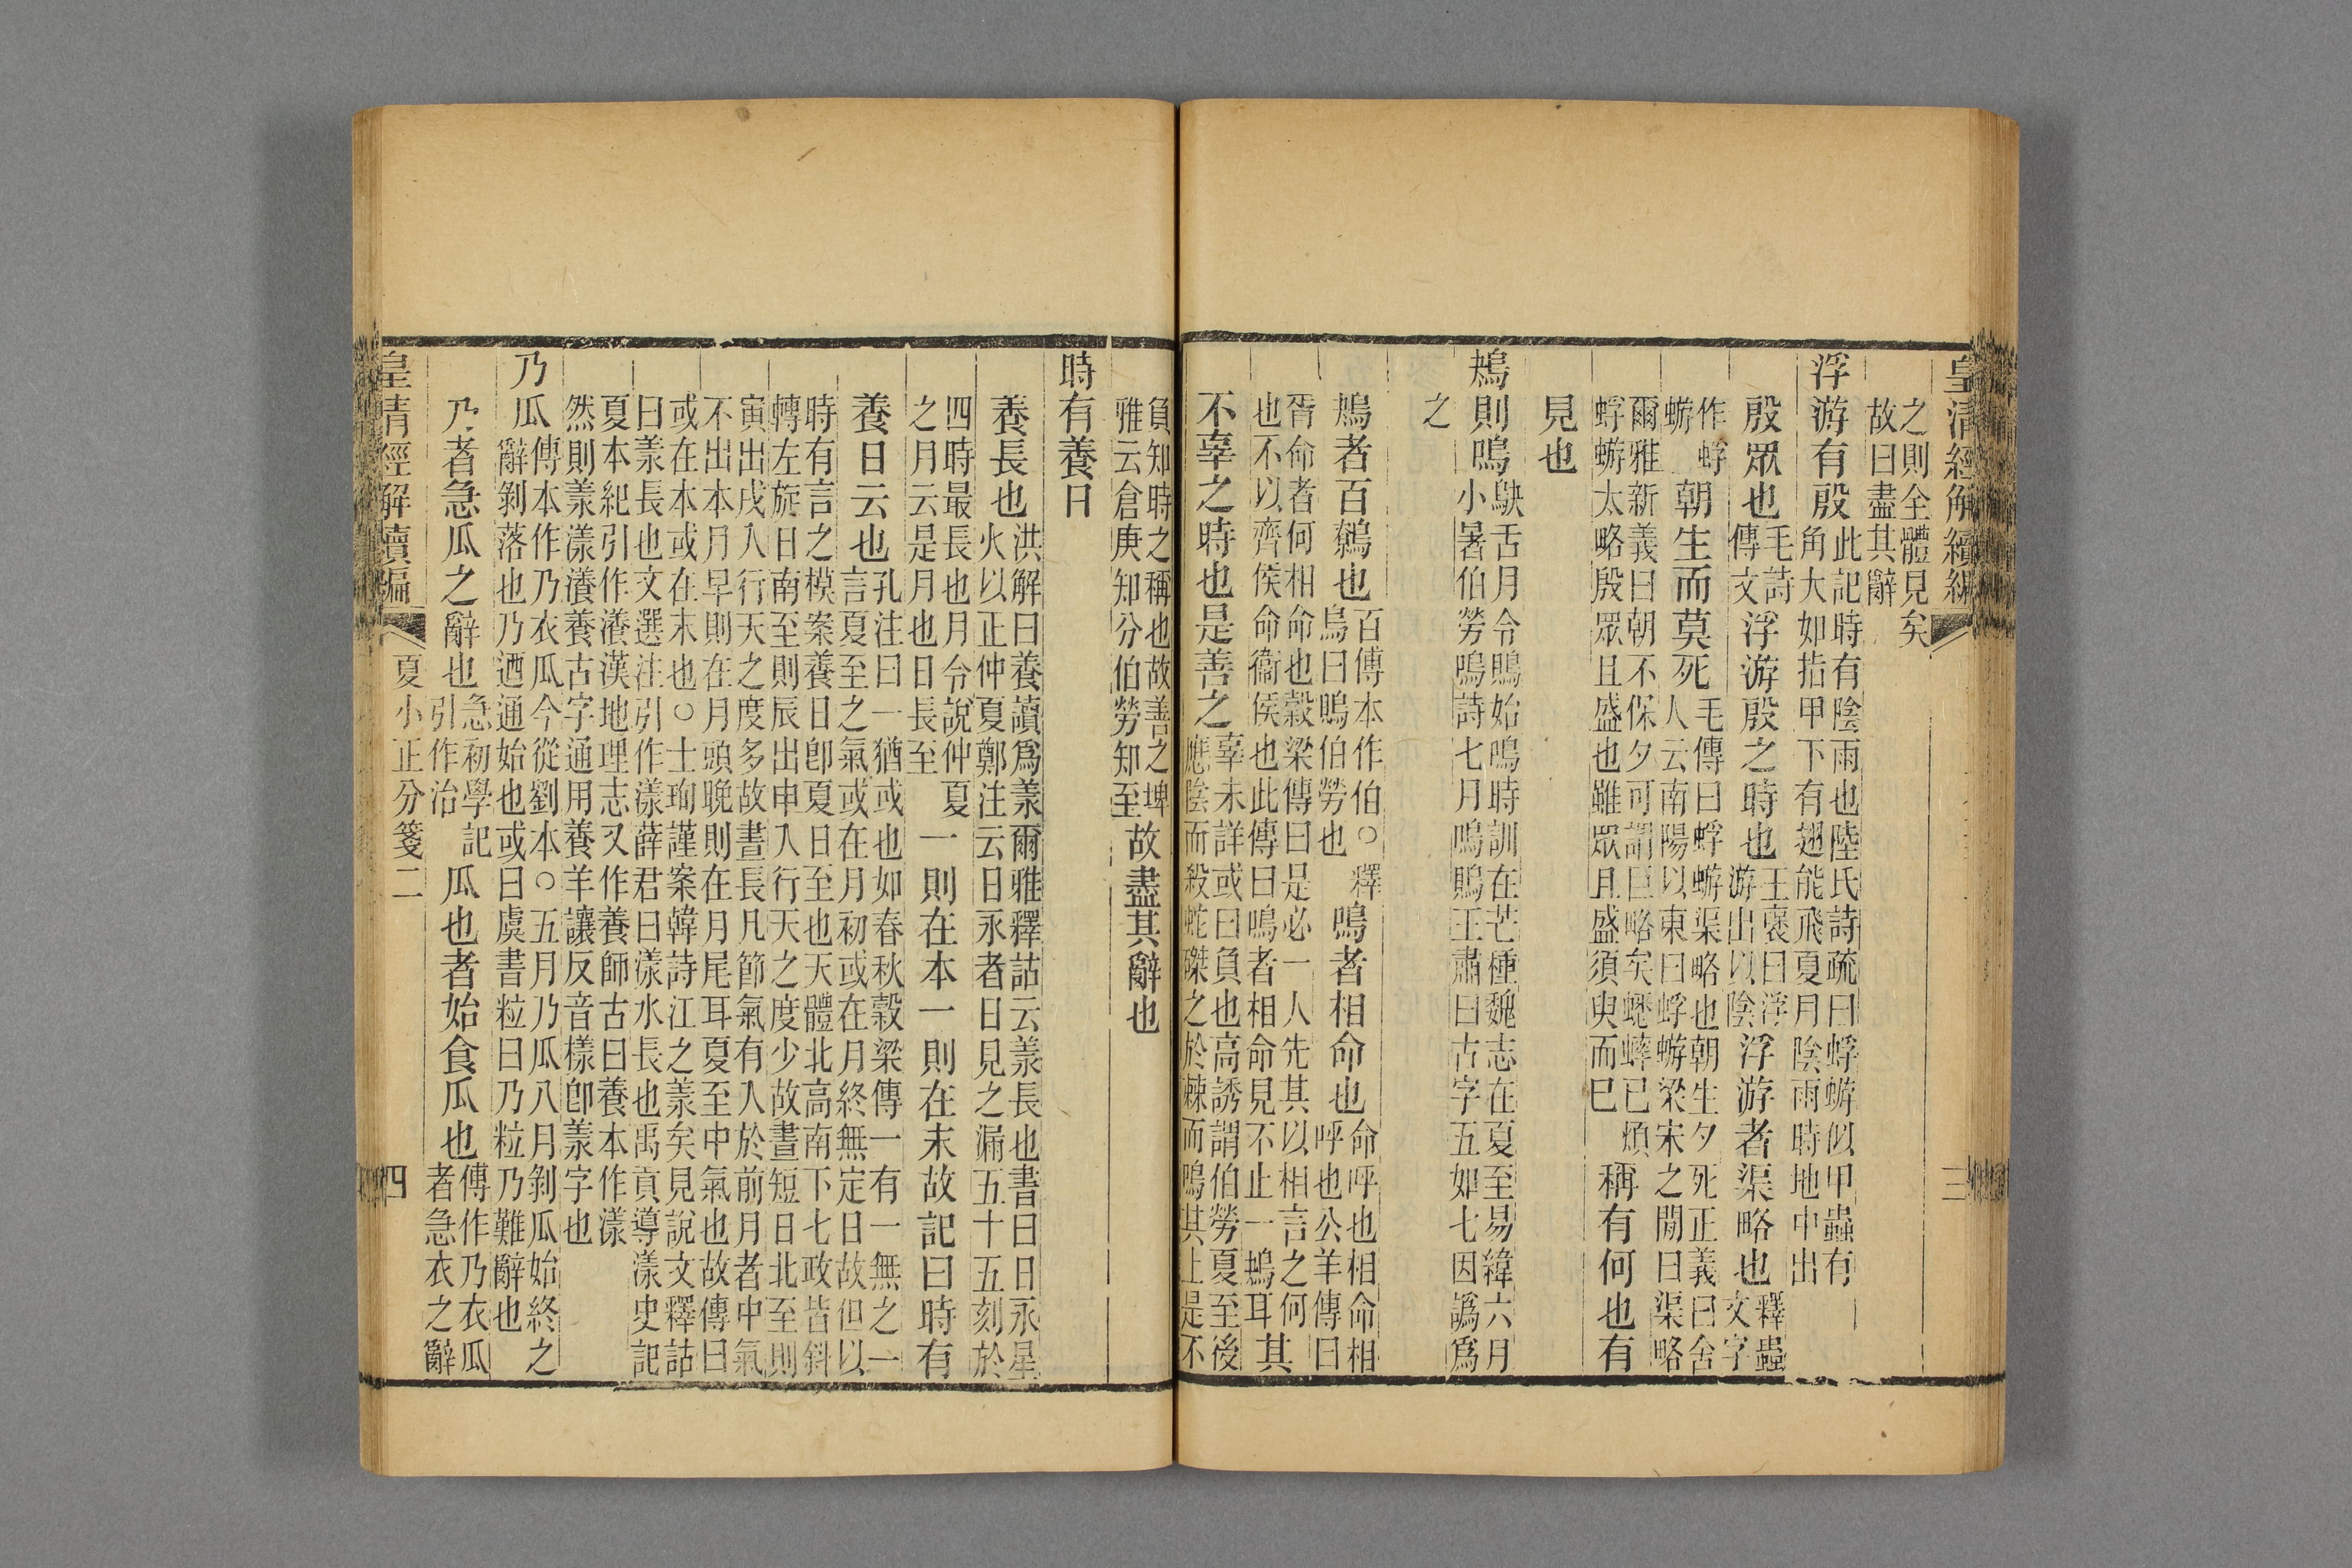 皇清經解續編
三
之則全體見矣
故曰盡其辭
浮游有殷此記時有陰雨也陸氏詩疏曰蜉蝣似甲蟲有
角大如指甲下有翅能飛夏月陰雨時地中出
殷眾也毛詩傳文浮游殷之時也王褒曰浮游出以陰浮游者渠略也釋蟲文字
作蜉蝣朝生而莫死毛傳曰蜉蝣渠略也朝生夕死正義曰舍
人云南陽以東曰蜉蝣梁宋之閒曰渠略
爾雅新義曰朝不保夕可謂巨略矣蟋蟀已煩
蜉蝣太略殷眾且盛也雖眾且盛須臾而已稱有何也有
見也
鴂則鳴鴃舌月令鵙始鳴時訓在芒種魏志在夏至易緯六月
小暑伯勞鳴詩七月鳴鵙王肅曰古字五如七因譌爲
之
鴂者百鷯也百傳本作伯○釋鳥曰鵙伯勞也鳴者相命也命呼也相命相呼也公羊傳曰
胥命者何相命也穀梁傳曰是必一人先其以相言之何
也不以齊侯命衞侯也此傳曰鳴者相命見不止一鴂耳其
不辜之時也是善之辜未詳或曰負也高誘謂伯勞夏至後
應陰而殺蛇磔之於棘而鳴其上是不
負知時之稱也故善之埤
雅云倉庚知分伯勞知至故盡其辭也
時有養日
養長也洪解曰養讀爲羕爾雅釋詁云羕長也書曰日永星
火以正仲夏鄭注云日永者日見之漏五十五刻於
四時最長也月令說仲夏
之月云是月也日長至一則在本一則在末故記曰時有
養日云也孔注曰一猶或也如春秋穀梁傳一有一無之一
言夏至之氣或在月初或在月終無定日故但以
時有言之模案養日卽夏日至也天體北高南下七政皆斜
轉左旋日南至則辰出申入行天之度少故晝短日北至則
寅出戌入行天之度多故晝長凡節氣有入於前月者中氣
不出本月早則在月頭晚則在月尾耳夏至中氣也故傳曰
或在本或在末也○士珣謹案韓詩江之羕矣見說文釋詁
曰羕長也文選注引作漾薛君曰漾水長也禹貢導漾史記
夏本紀引作瀁漢地理志又作養師古曰養本作漾
然則羕漾瀁養古字通用養羊讓反音樣卽羕字也
乃瓜傳本作乃衣瓜今從劉本○五月乃瓜八月剝瓜始終之
辭剝落也乃迺通始也或曰虞書粒曰乃粒乃難辭也
乃者急瓜之辭也急初學記引作治瓜也者始食瓜也傳作乃衣瓜
者急衣之辭
皇清經解續編
夏小正分箋二
四